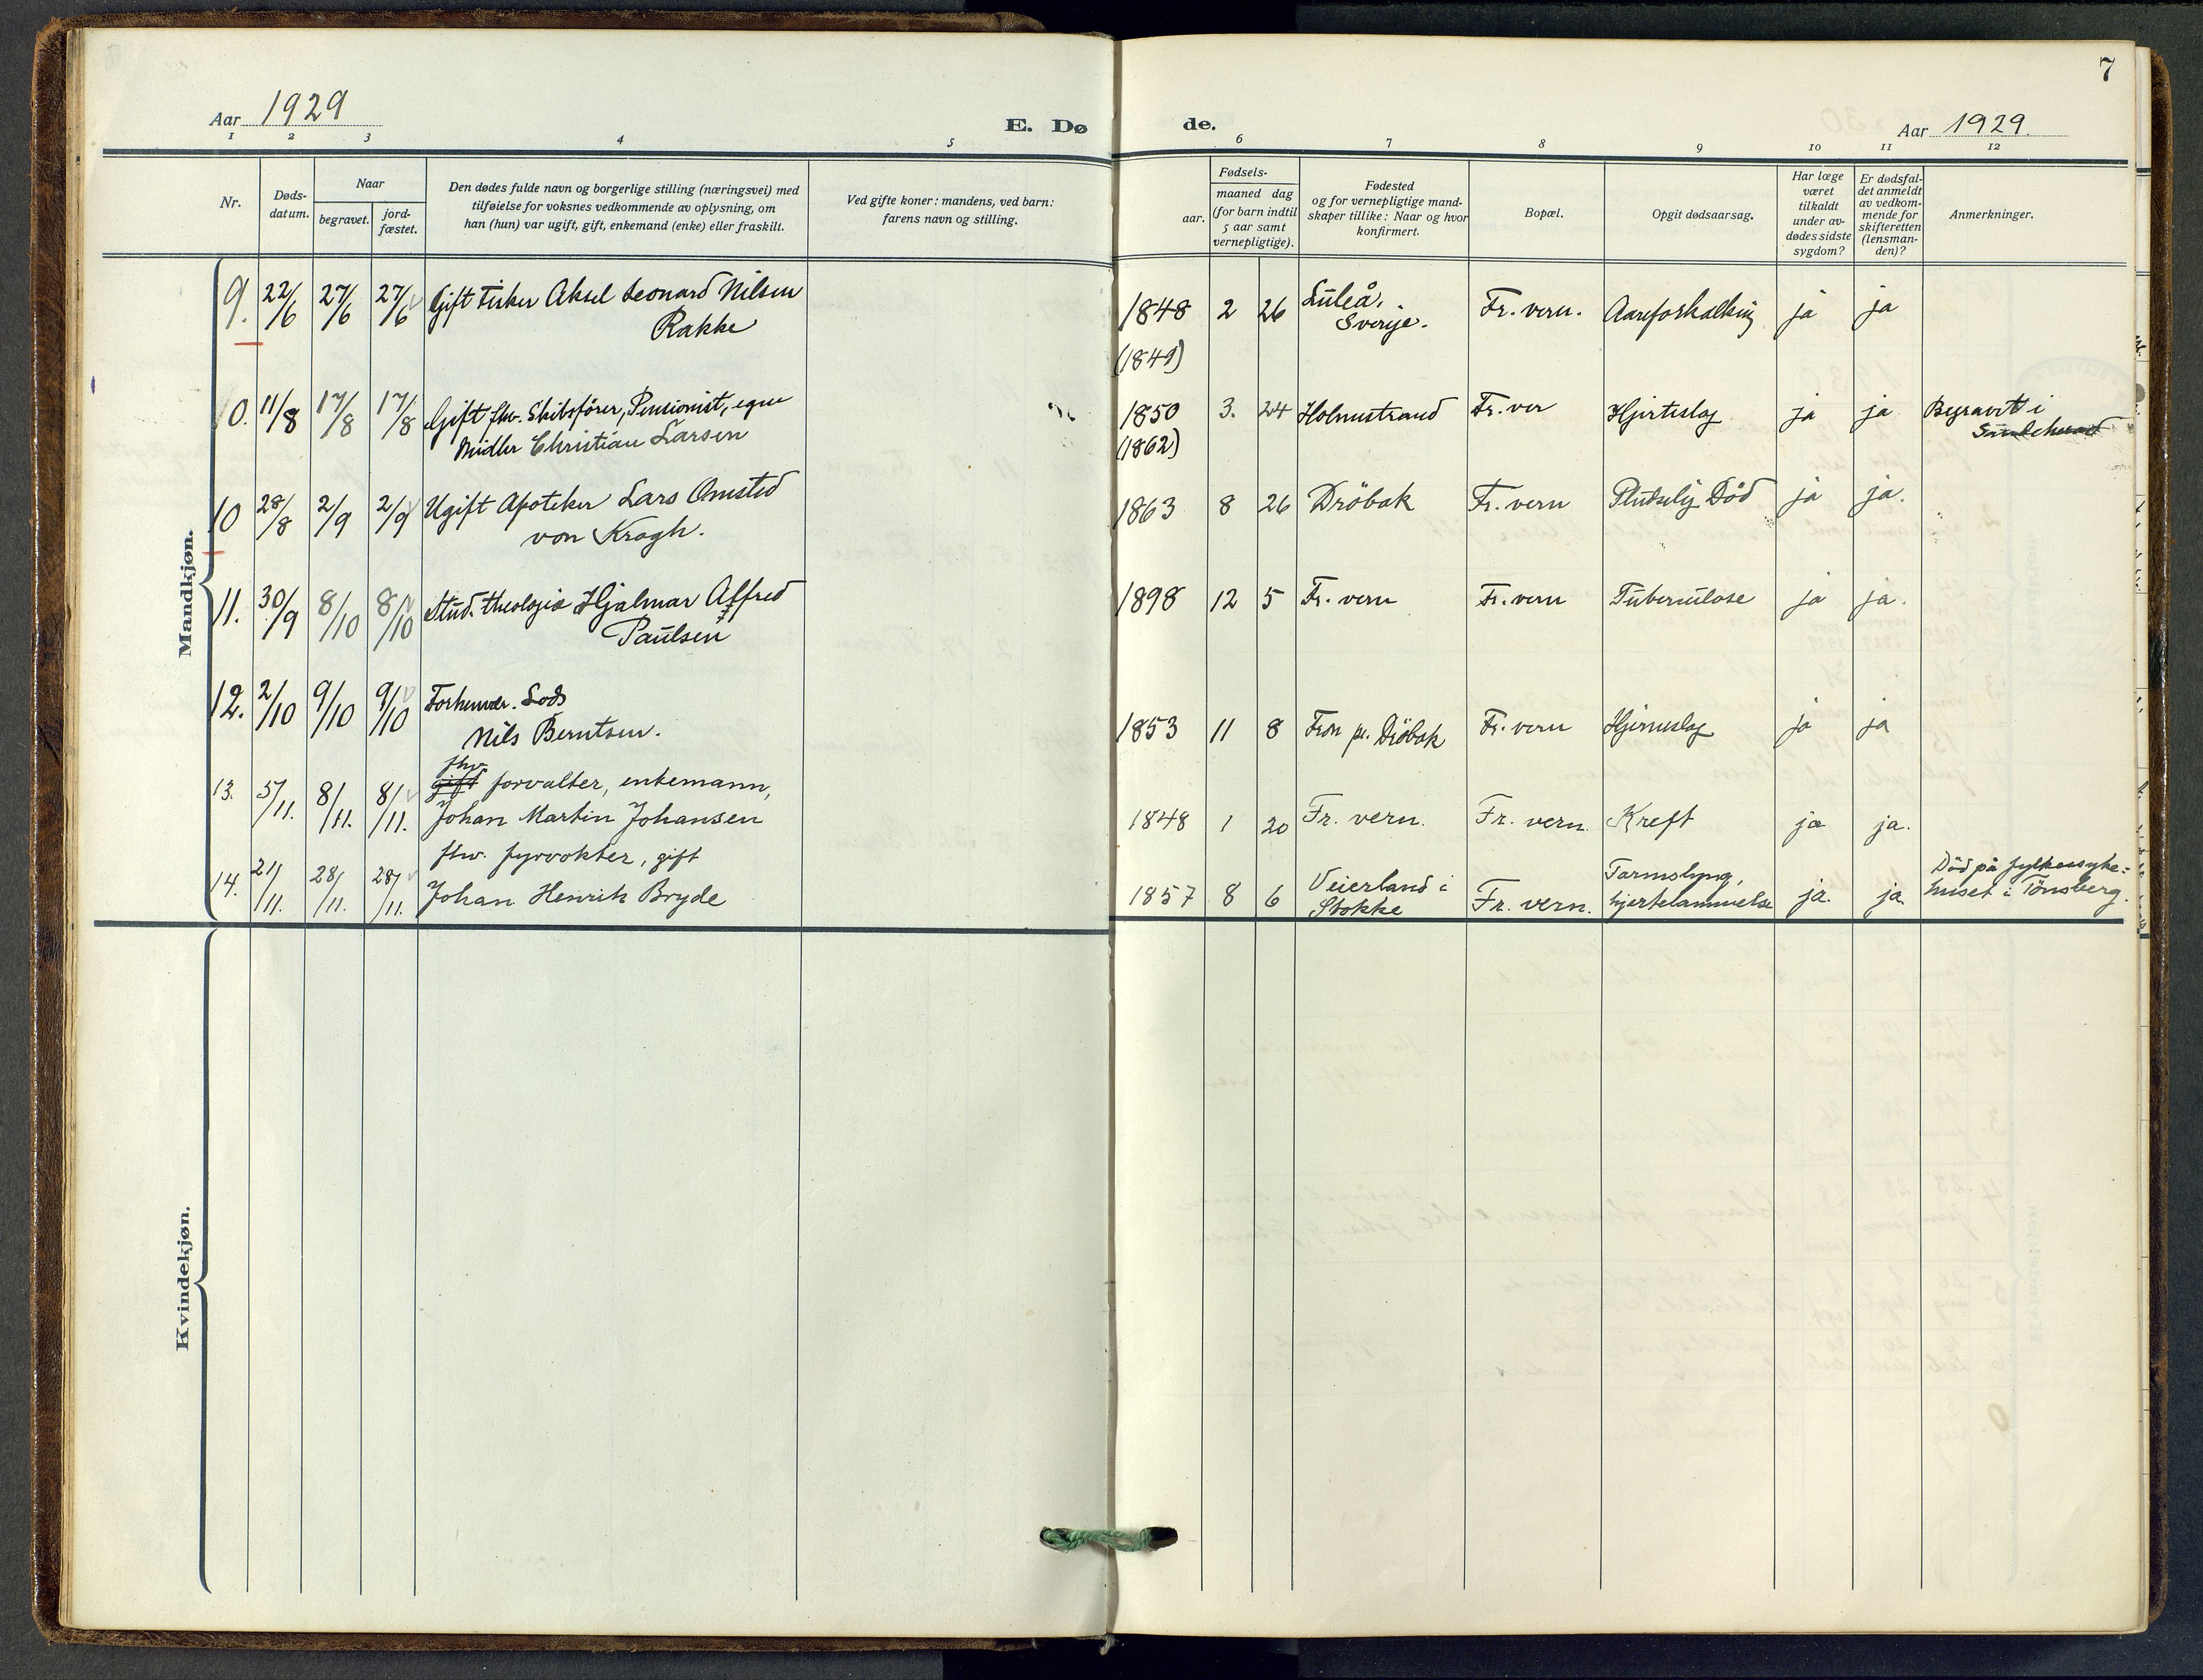 7
Aar 1929
E. Dø de.
Aar 1929.
1 2 3 4 5 6 7 8 9 10 11 12
Nr.
Døds-
datum.
Naar
begravet.
jord-
fæstet.
Den dødes fulde navn og borgerlige stilling (næringsvei) med
tilføielse for voksnes vedkommende av oplysning, om
han (hun) var ugift, gift, enkemand (enke) eller fraskilt.
Ved gifte koner: mandens, ved barn:
farens navn og stilling.
Fødsels-
aar.
maaned dag
(for barn indtil
5 aar samt
vernepligtige).
Fødested
og for vernepligtige mand-
skaper tillike: Naar og hvor
konfirmert.
Bopæl.
Opgit dødsaarsag.
Har læge
været
tilkaldt
under av-
dødes sidste
sygdom?
Er dødsfal-
det anmeldt
av vedkom-
mende for
skifteretten
(lensman-
den)?
Anmerkninger.
Mandkjøn.
9. 22/6 27/6 27/6 Gift Fisker Aksel Leonard Nilsen
Rakke
1848 2 26 Luleå,
Sverije.
Fr. vern. Aareforkalking ja ja
(1849)
10. 11/8 17/8 17/8 Gift fhv. Skibsfører, Pensionist, egne
Midler Christian Larsen
1850 3. 24 Holmestrand Fr. ver Hjerteslag ja ja Begravet i
Sandeherred
(1862)
10 28/8 2/9 2/9 Ugift Apoteker Lars Omsted
von Krogh.
1863 8 26 Drøbak Fr. vern Pludselig Død ja ja.
11. 30/9 8/10 8/10 Stud. theologiæ Hjalmar Alfred
Paulsen
1898 12 5 Fr. vern Fr. vern Tuberculose ja ja.
12. 2/10 9/10 9/10 Forhenvær. Lods
Nils Berntsen.
1853 11 8 Fron pr. Drøbak Fr. vern Hjerneslag ja ja
fhv.
13. 5/11. 8/11. 8/11. gift forvalter, enkemann,
Johan Martin Johansen
1848 1 20 Fr. vern. Fr. vern. Kreft ja ja.
14. 21/11. 28/11. 28/11. fhv. fyrvokter, gift
Johan Henrik Bryde
1857 8 6 Veierland i
Stokke
Fr. vern. Tarmslyng,
hjertelammelse
ja. ja. Død på fylkessyke=
huset i Tønsberg.
Kvindekjøn.